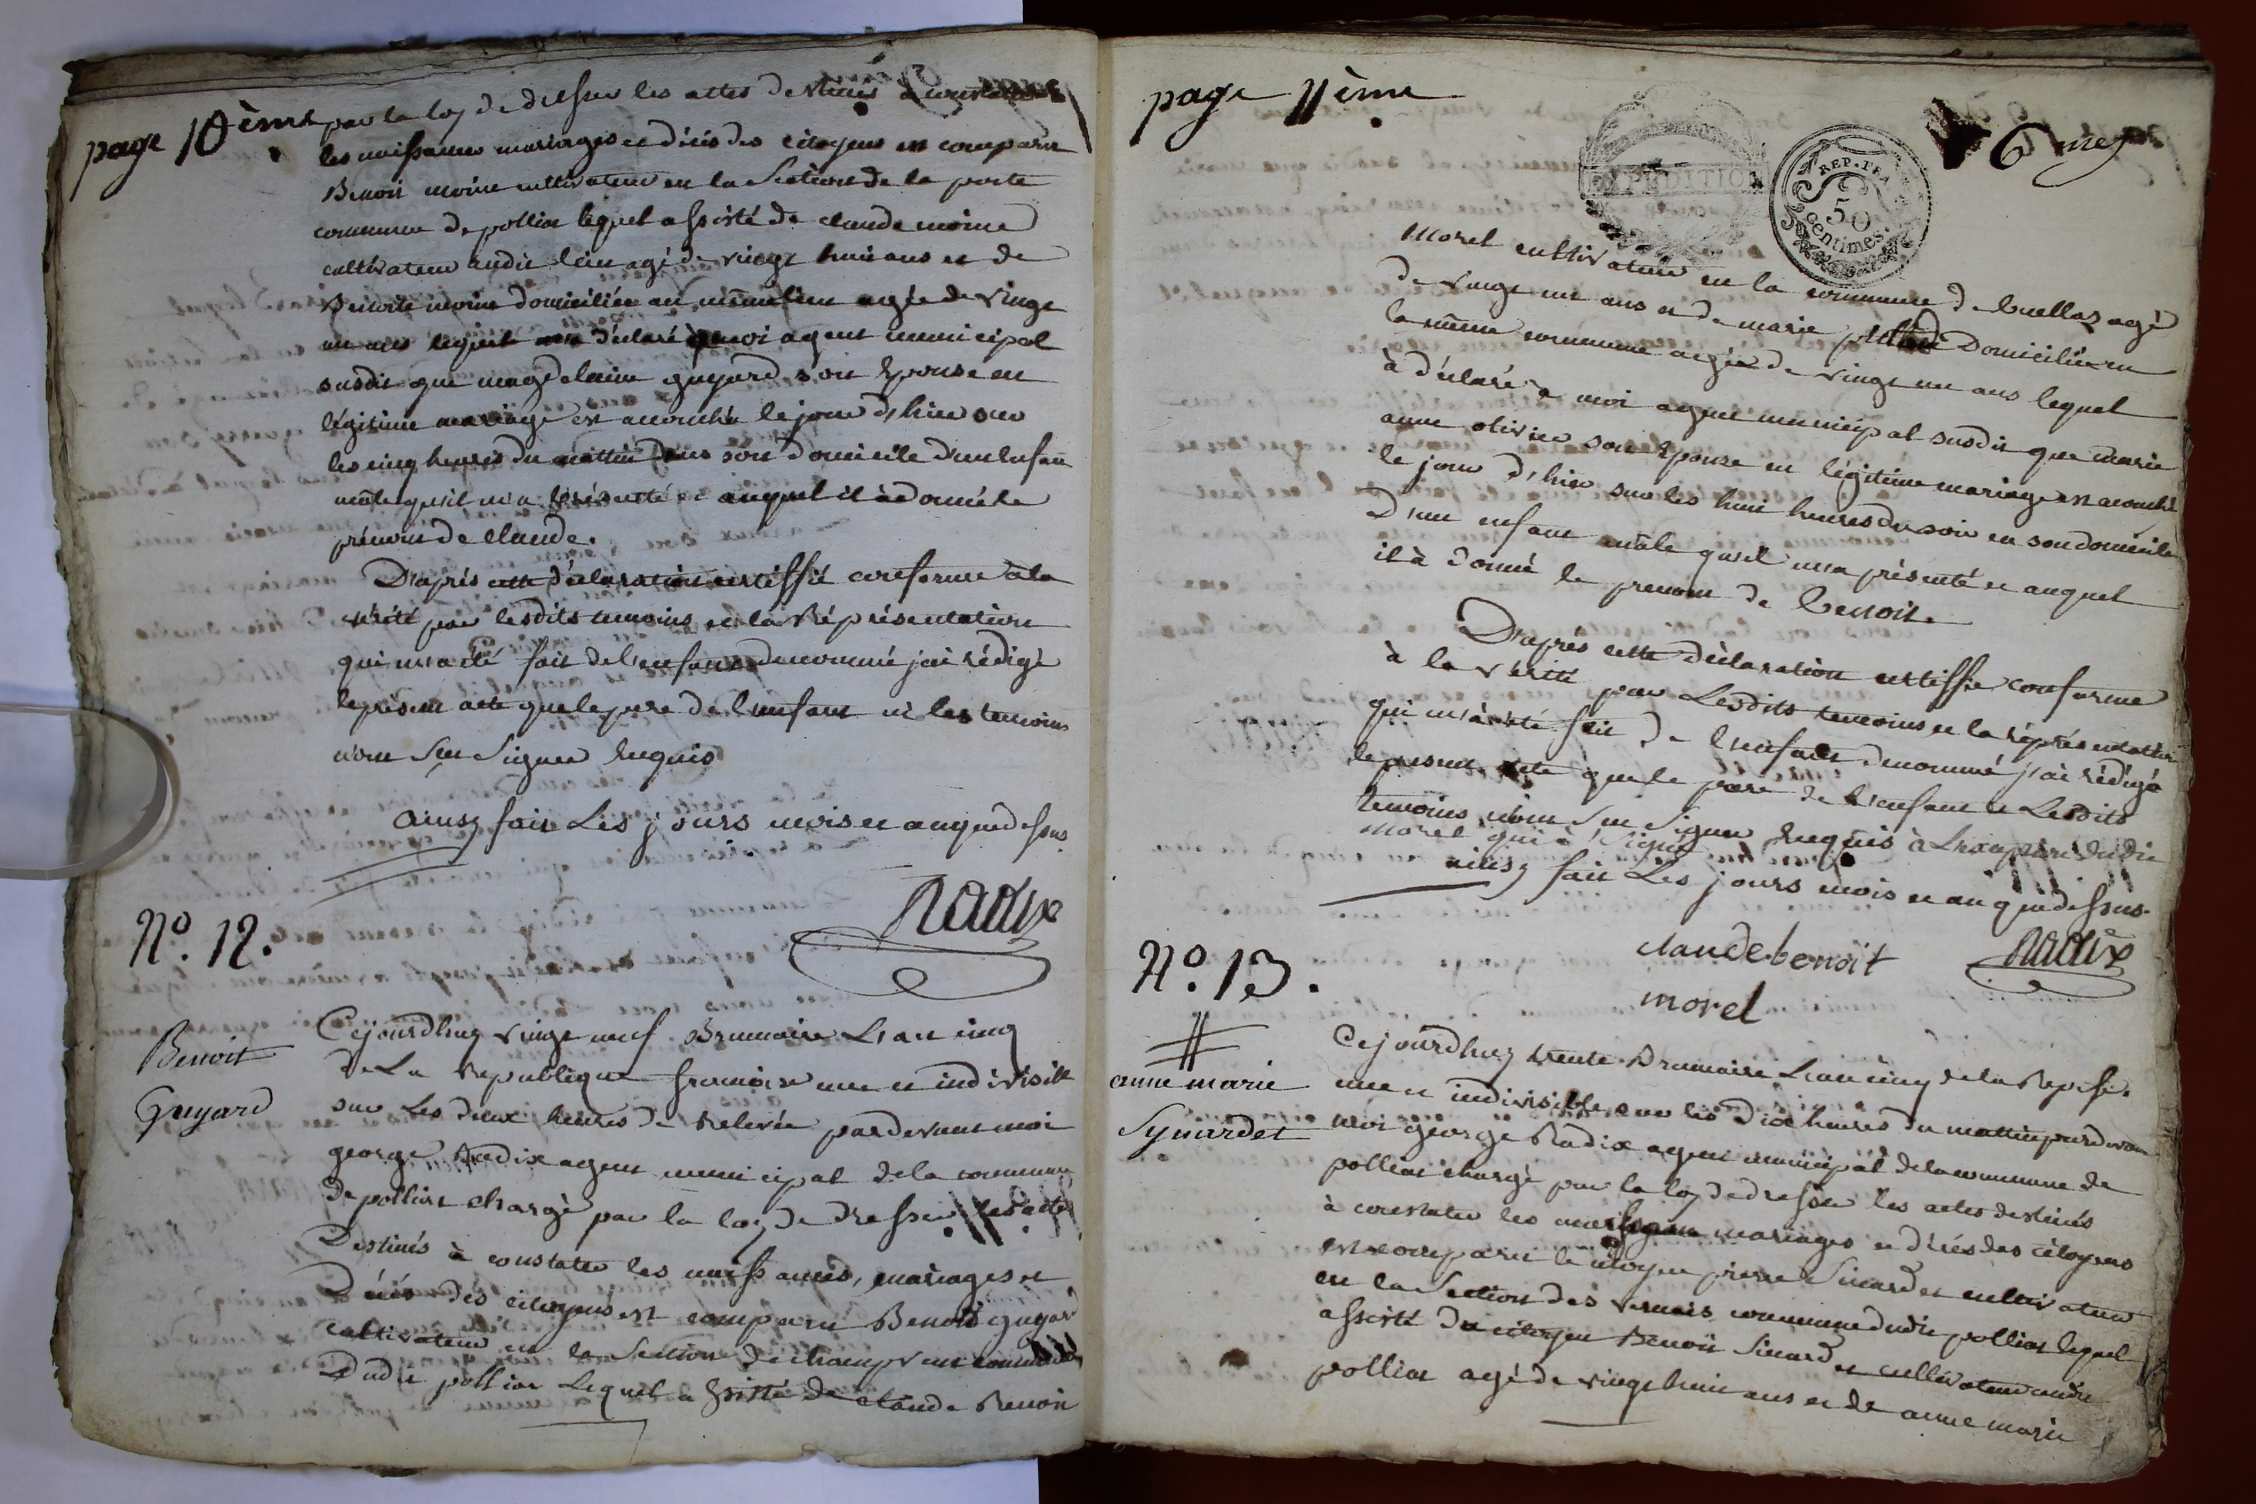 page 10ème
par la loy de dresser les actes destinés a constater
les naissances mariages et décés des citoyens est comparu
Benoit moine cultivateur en la Section de la porte
commune de polliat lequel assisté de claude moine
cultivateur audit lieu agé de vingt huit ans et de
Benoite moine domiciliée au même lieu agée de vingt
un ans lequel a déclaré à moi agent municipal
susdit que magdelaine guyard son Epouse en
légitime mariage est acouchée le jour d'hier sur
les cinq heures du mattin dans son domicile d'un enfant
mâle qu'il m'a présenté et auquel il à donné le
prénom de claude.
D'aprés cette déclaration certiffié conforme à la
vérité par lesdits temoins et la Réprésentation
qui m'a été fait de l'enfant denommé j'ai rédigé
le présent acte que le pere de l'enfant et les temoins
n'ont Sçu Signer Enquis
ainsy fait Les jours mois et an que dessus
Radix
N.º 12.
Benoit
Guyard
Cejourdhuy vingt neuf Brumaire L'an cinq
de La Republique francaise une et indivisible
sur Les deux heures de Relevée pardevant moi
george Radix agent municipal de la commune
de polliat chargé par la loy de dresser les actes
Destinés à constater les naissances, mariages et
Décés des citoyens est comparu Benoit guyard
cultivateur en la Section de champvent commune
Dudit polliat Lequel assisté de claude Benoit
page 11ème
6 mes
EXPEDITION
REP. FRA.
50
centimes
Morel cultivateur en la commune de buellas agé
de vingt un ans et de marie Domiciliée en
la même commune agée de vingt un ans lequel
à déclaré à moi agent municipal susdit que marie
anne olivier son Epouse en légitime mariage est acouchée
le jour d'hier sur les huit heures du soir en son domicile
D'un enfant mâle qu'il m'a présenté et auquel
il à donné le prenom de Benoit.
D'aprés cette déclaration certiffié conforme
à la vérité par Lesdits temoins et la réprésentation
qui m'à été fait de l'enfant denommé j'ai rédigé
le present acte que le pere de l'enfant et Lesdits
temoins n'ont Sçu Signer Enquis à L'exception dudit
Morel qui à Signé
ainsy fait Les jours mois et an que dessus.
claude benoit
morel
Radix
N.º 13.
anne marie
Synardet
Cejourdhuy trente Brumaire L'an cinq de la Rep. fr.
une et indivisible sur les dix heures du mattin pardevant
moi george Radix agent municipal de la commune de
polliat chargé par la loy de dresser les actes destinés
à constater les naissances mariages et décés des citoyens
est comparu le citoyen pierre Sinardet cultivateur
en la Section des vernais commune dudit polliat lequel
assisté du citoyen Benoit Sinardet cultivateur audit
polliat agé de vingt huit ans et de anne marie